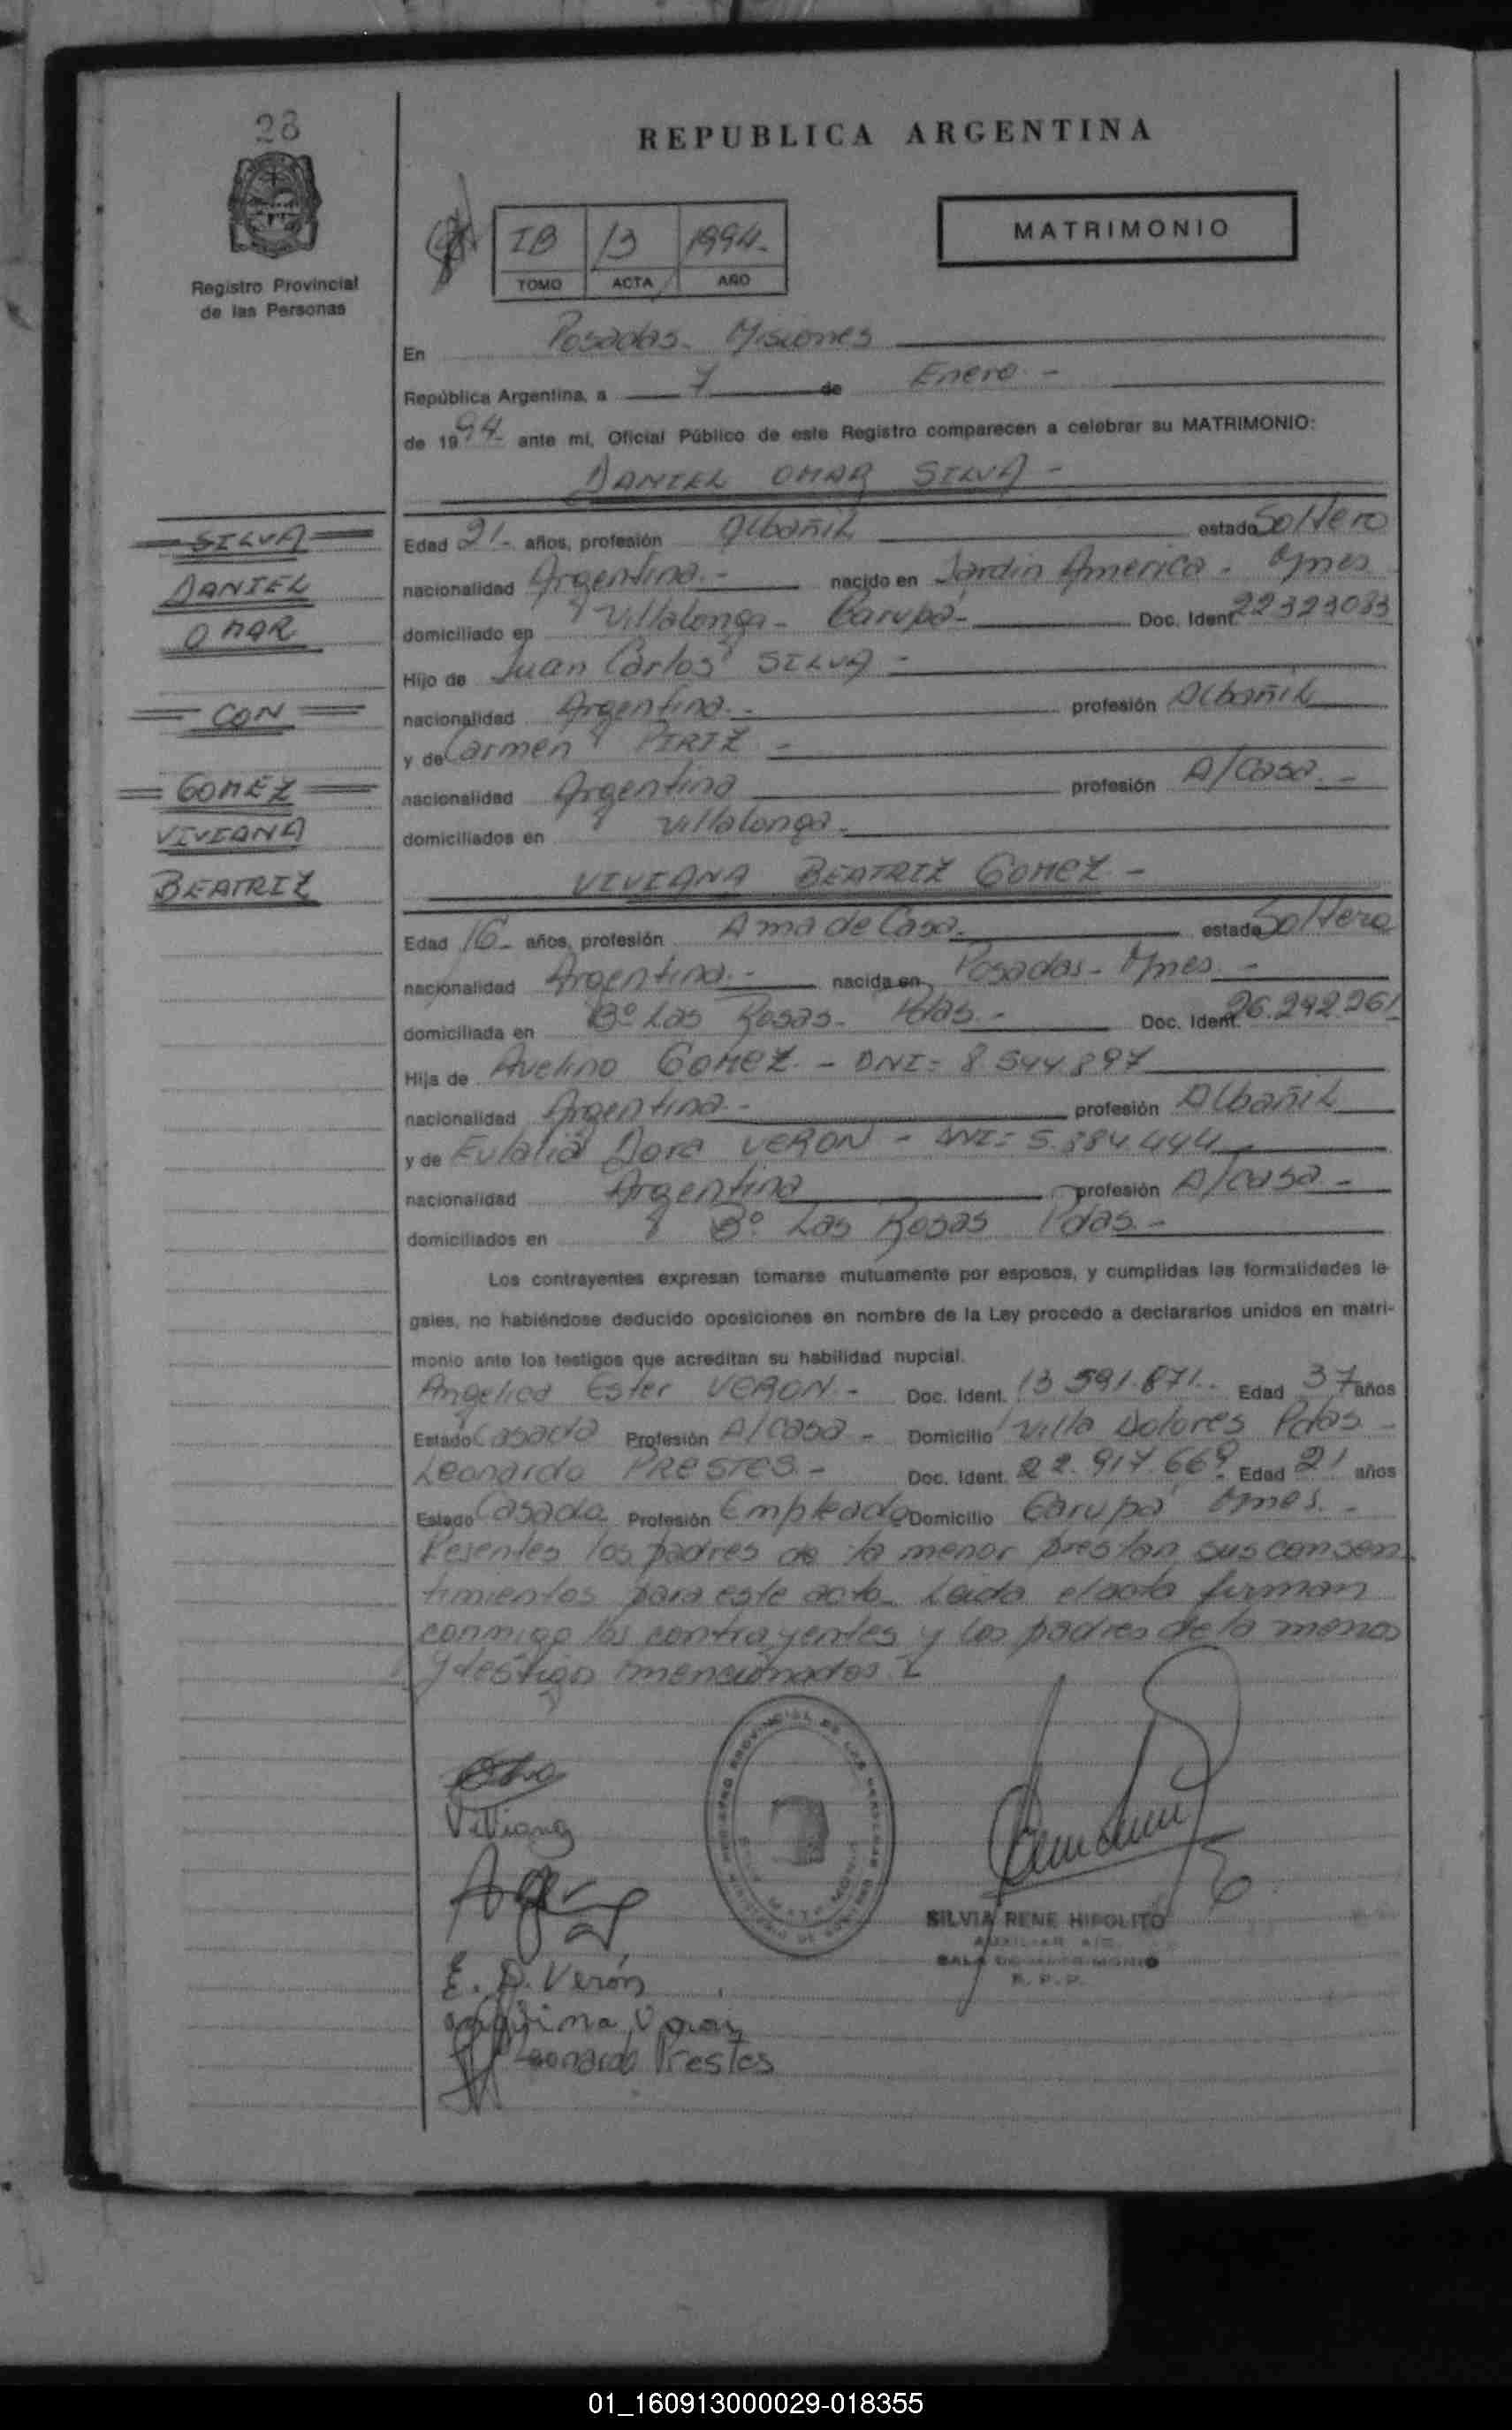 28
REPUBLICA ARGENTINA
Registro Provincial
de las Personas
IB 13 1994.-
TOMO ACTA AÑO
MATRIMONIO
En Posadas- Misiones
República Argentina, a 7 de Enero -
de 1994- ante mí, Oficial Público de este Registro comparecen a celebrar su MATRIMONIO:
DANIEL OMAR SILVA -
SILVA
DANIEL
OMAR
CON
GOMEZ
VIVIANA
BEATRIZ
Edad 21- años, profesión Albañil estado Soltero
nacionalidad Argentina.- nacido en Jardin America - Mnes
domiciliado en Villalonga- Garupá- Doc. Ident. 22323083
Hijo de Juan Carlos SILVA -
nacionalidad Argentina.- profesión Albañil
y de Carmen PIRIZ -
nacionalidad Argentina profesión A/Casa.-
domiciliados en Villalonga-
VIVIANA BEATRIZ GOMEZ -
Edad 16- años, profesión Ama de Casa- estado Soltera
nacionalidad Argentina.- nacida en Posadas- Mnes.-
domiciliada en Bº Las Rosas- Pdas.- Doc. Ident. 26.242.261
Hija de Avelino GOMEZ.- DNI= 8.544.897
nacionalidad Argentina- profesión Albañil
y de Eulalia Dora VERON - DNI= 5.384.444
nacionalidad Argentina profesión A/casa -
domiciliados en Bº Las Rosas Pdas.-
Los contrayentes expresan tomarse mutuamente por esposos, y cumplidas las formalidades le-
gales, no habiéndose deducido oposiciones en nombre de la Ley procedo a declararlos unidos en matri-
monio ante los testigos que acreditan su habilidad nupcial.
Angelica Ester VERON.- Doc. Ident. 13.591.871.- Edad 37 años
Estado Casada Profesión A/casa - Domicilio Villa Dolores Pdas -
Leonardo PRESTES.- Doc. Ident. 22.917.669 Edad 21 años
Estado Casado Profesión Empleado Domicilio Garupá Mnes.-
Presentes los padres de la menor prestan sus consen
timientos para este acto- Leida el acta firman
conmigo los contrayentes y los padres de la menor
y testigo mencionados
Viviana
E. D. Verón
Leonardo Prestes
SILVIA RENE HIPOLITO
SALA DE MATRIMONIO
R. P. P.
01_160913000029-018355